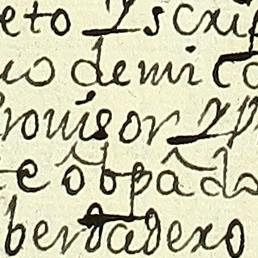 eto Y scrip
uo demi co
rouisor Y p
te obpado
berdadero